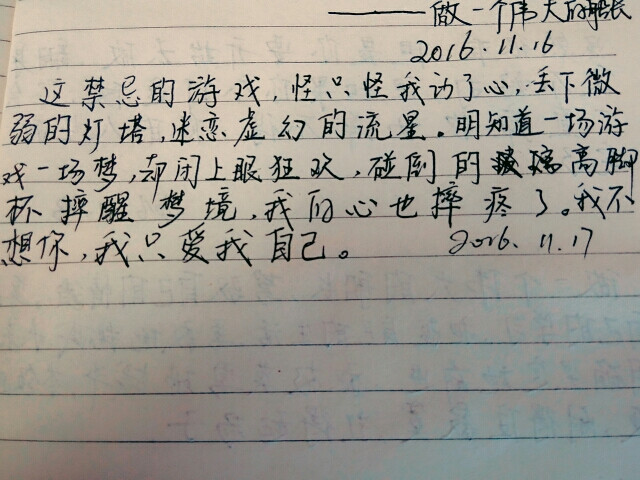 ——做一个伟大的船长
2016.11.16
这禁忌的游戏,怪只怪我访了心,丢下微
弱的灯塔,迷恋虚幻的流星。明知道一场游
戏一场梦,却闭上眼狂欢,碰倒的玻璃高脚
杯摔醒梦境,我的心也摔疼了。我不
想你,我只爱我自己。
2016.11.17